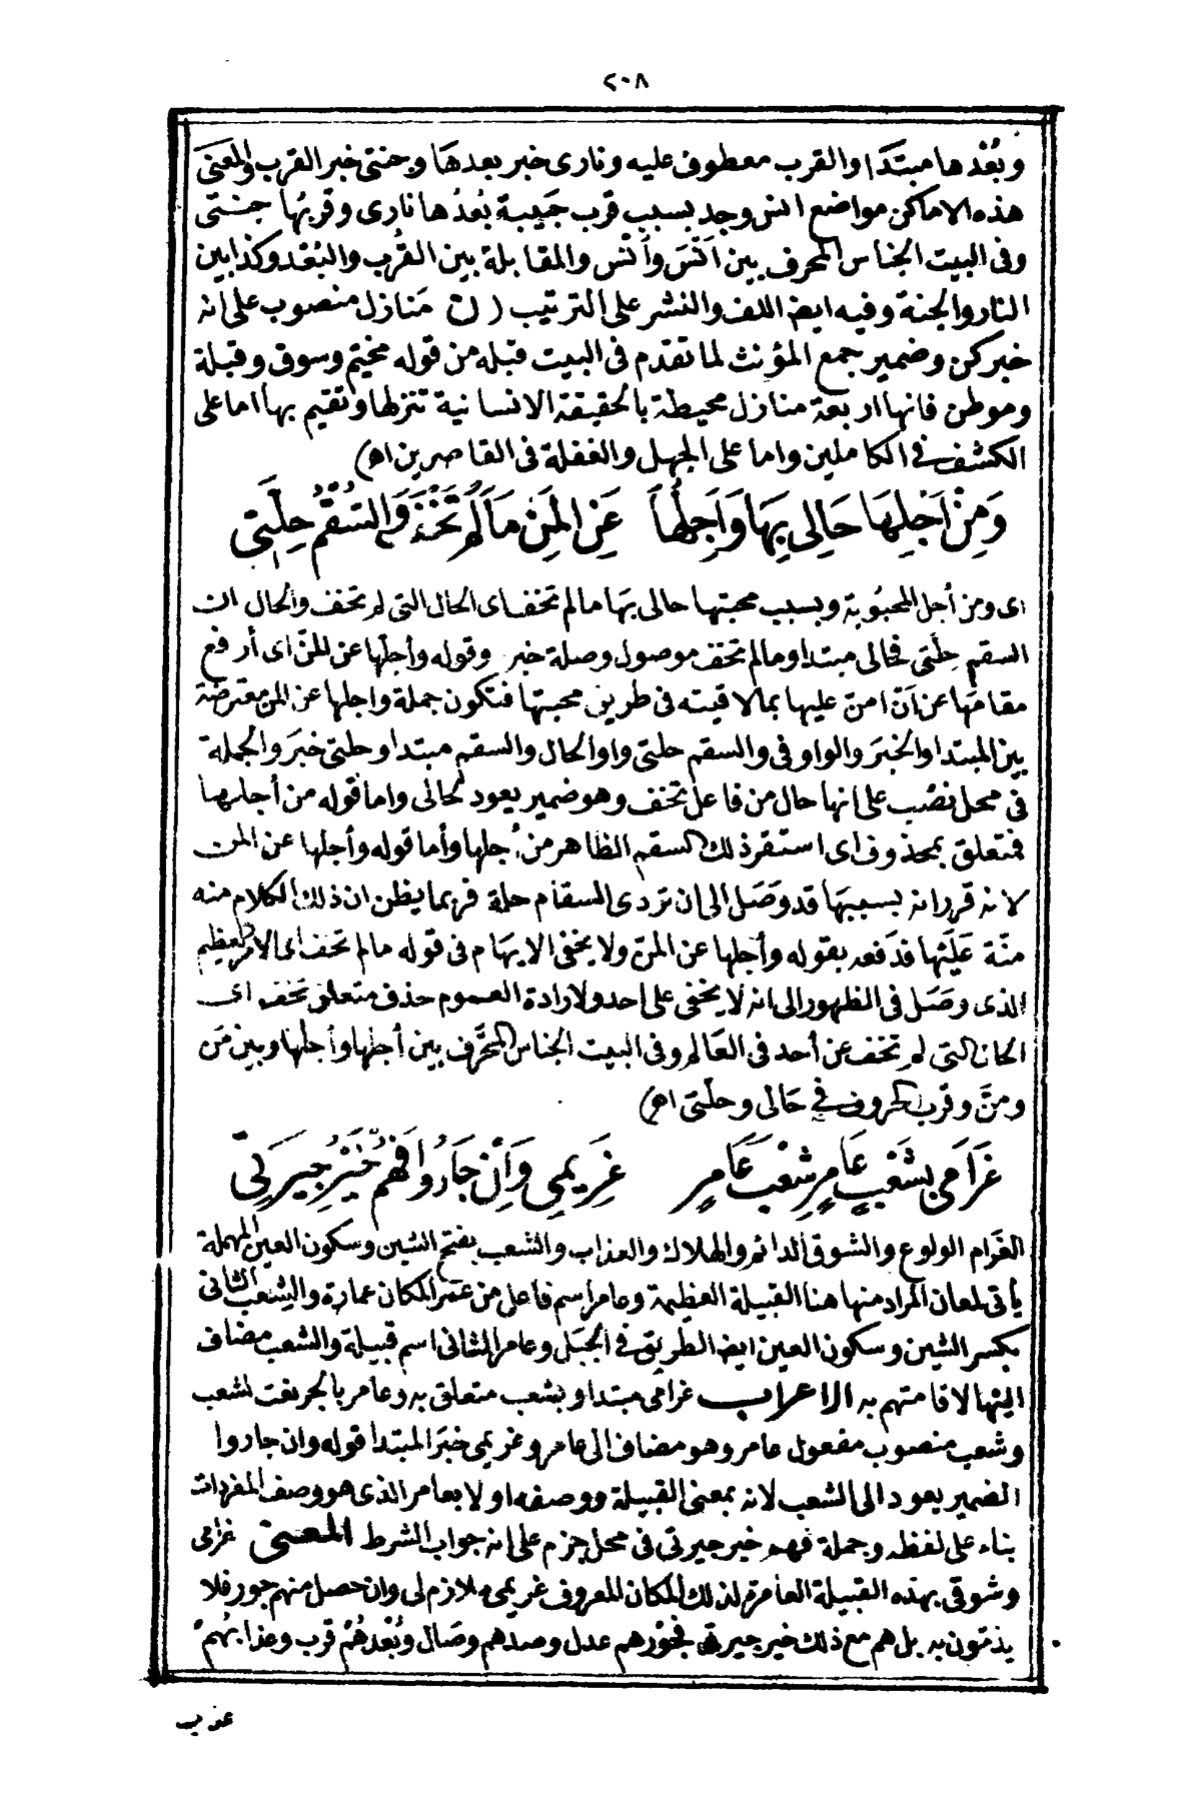 ٢٠٨
وبُعْدها مبتَدَا والقرب معطوف عليه ونارى خبر بعدهَا وجنتى خبر القرب والمعنَى
هذه الاماكن مواضع انس وجد بسبب قرب حَبيبة بُعدُها نارى وقربُها جنتى
وفى البيت الجناس المحرف بين اَنْسَ واُنْس والمقابلة بين القُرب والبُعْد وكذا بين
النار والجنة وفيه ايضا اللف والنشر على الترتيب (ن مَنازل منصوب على انه
خبر كن وضمير جمع المؤنث لما تقدم فى البيت قبله من قوله مخيّم وسوق وقبلة
وموطن فانها اربعة منازل محيطة بالحقيقة الانسانية تنزلها وتقيم بها اما على
الكشف فى الكاملين واما على الجهل والغفلة فى القاصرين اه)
وَمِنْ اَجْلِهَا حَالِى بِهَا وَاَجِلُّهاَ عَنِ الْمَنِّ مَا لَمْ تَخْفَ وَالسُّقْمُ حِلَّتِى
اى ومن أجل المحبُوبة وبسبب محبتها حالى بهَا ما لم تخف اى الحال التى لم تخف والحال ان
السقم حِلّتى فحالى مبتدا وما لم تخف موصول وصلة خبر وقوله وأجلّها عن المنّ اى أرفع
مقامَها عن اَن امنّ عليها بما لاقيته فى طريق محبتها فتكون جملة واجلها عن المن معترضة
بين المبتدا والخبَر والواو فى والسقم حلتى واو الحال والسقم مبتدا وحلتى خبَر والجملة
فى محل نصْب على انها حال من فاعل تخف وهو ضمير يعود لحالى واما قوله من أجلها
فمتعلق بمحذوف اى استقر ذلك السقم الظاهر من أجلها وأما قوله وأجلها عن المن
لانه قرر انه بسببهَا قد وصَل الى ان تردى السقام حلة فربما يظن ان ذلك الكلام منه
منّة عَلَيْها فدَفعه بقوله وأجلها عن المنّ ولا يخفى الابهام فى قوله ما لم تخف اى الامر العظيم
الذى وصَل فى الظهور الى انه لا يخفى على احد ولارادة العموم حذف متعلق تخف اى
الحال التى لم تخف عن أحد فى العَالم وفى البيت الجناس المحَرّف بين أجلها وأجلها وبين مَن
ومنَّ وقرب الحروف فى حَالى وحلّتى اه)
غَرَامِى بِشَعْبٍ عَامِرٍ شِعْبَ عَامِرٍ غَرِيمِى وَاِنْ جَارُوا فَهُمْ خَيْرُ جِيرَتِى
الغَرام الولوع والشوق الدائم والهلاك والعذاب والشعب بفتح الشين وسكون العين المهملة
يأتى لمعان المراد منها هنا القبيلة العظيمة وعامر اسم فاعل من عمَر المكان عمارة والشعب الثانى
بكسر الشين وسكون العين ايضا الطريق فى الجبَل وعامر الثانى اسم قبيلة والشعب مضاف
اليْها لاقامتهم به الاعراب غرامى مبتدا وبشعب متعلق به وعامر بالجر نعت لشعب
وشعب منصوب مفعول عامر وهو مضاف الى عامر وغريمى خبَر المبتدا قوله وان جاروا
الضمير يعود الى الشعب لانه بمعنى القبيلة ووصفه اولا بعامر الذى هو وصف المفردات
بناء على لفظه وجملة فهم خير جيرتى فى محل جزم على انه جواب الشرط المعنى غرامى
وشوقى بهذه القبيلة العامرة لذلك المكان المعروف غريمى ملازم لى وان حصل منهم جور فلا
يذمّون به بل هم مع ذلك خير جيرة فجَوْرهم عدل وصدهم وصَال وبُعْدهُمْ قرب وعذابُهمْ
عذب